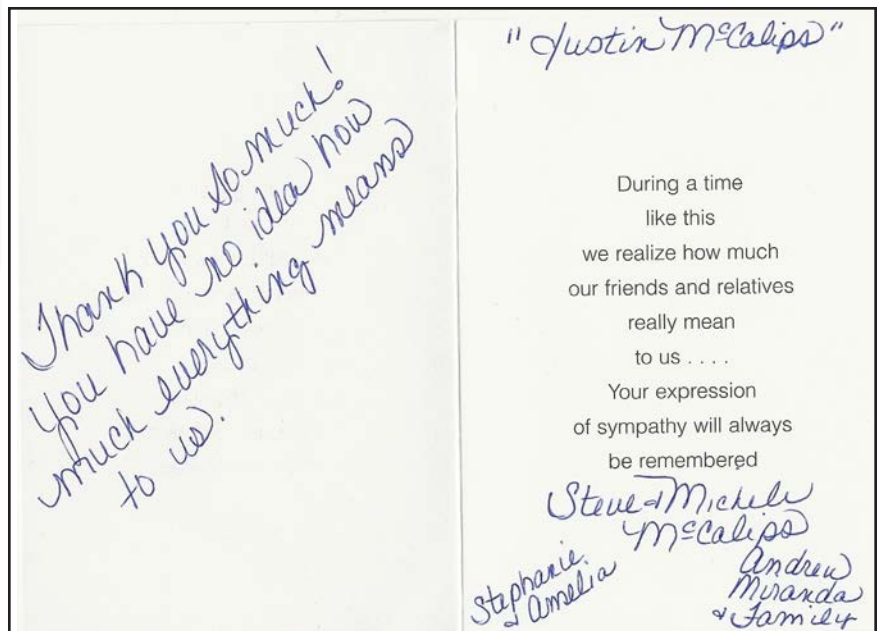 Thank you so much!
you have no idea how
much everything means
to us.
"Justin McCalips"
During a time
like this
we realize how much
our friends and relatives
really mean
to us . . . .
Your expression
of sympathy will always
be remembered
Steve & Michele
McCalips
Stephanie
& Amelia
Andrew
Miranda
& Family